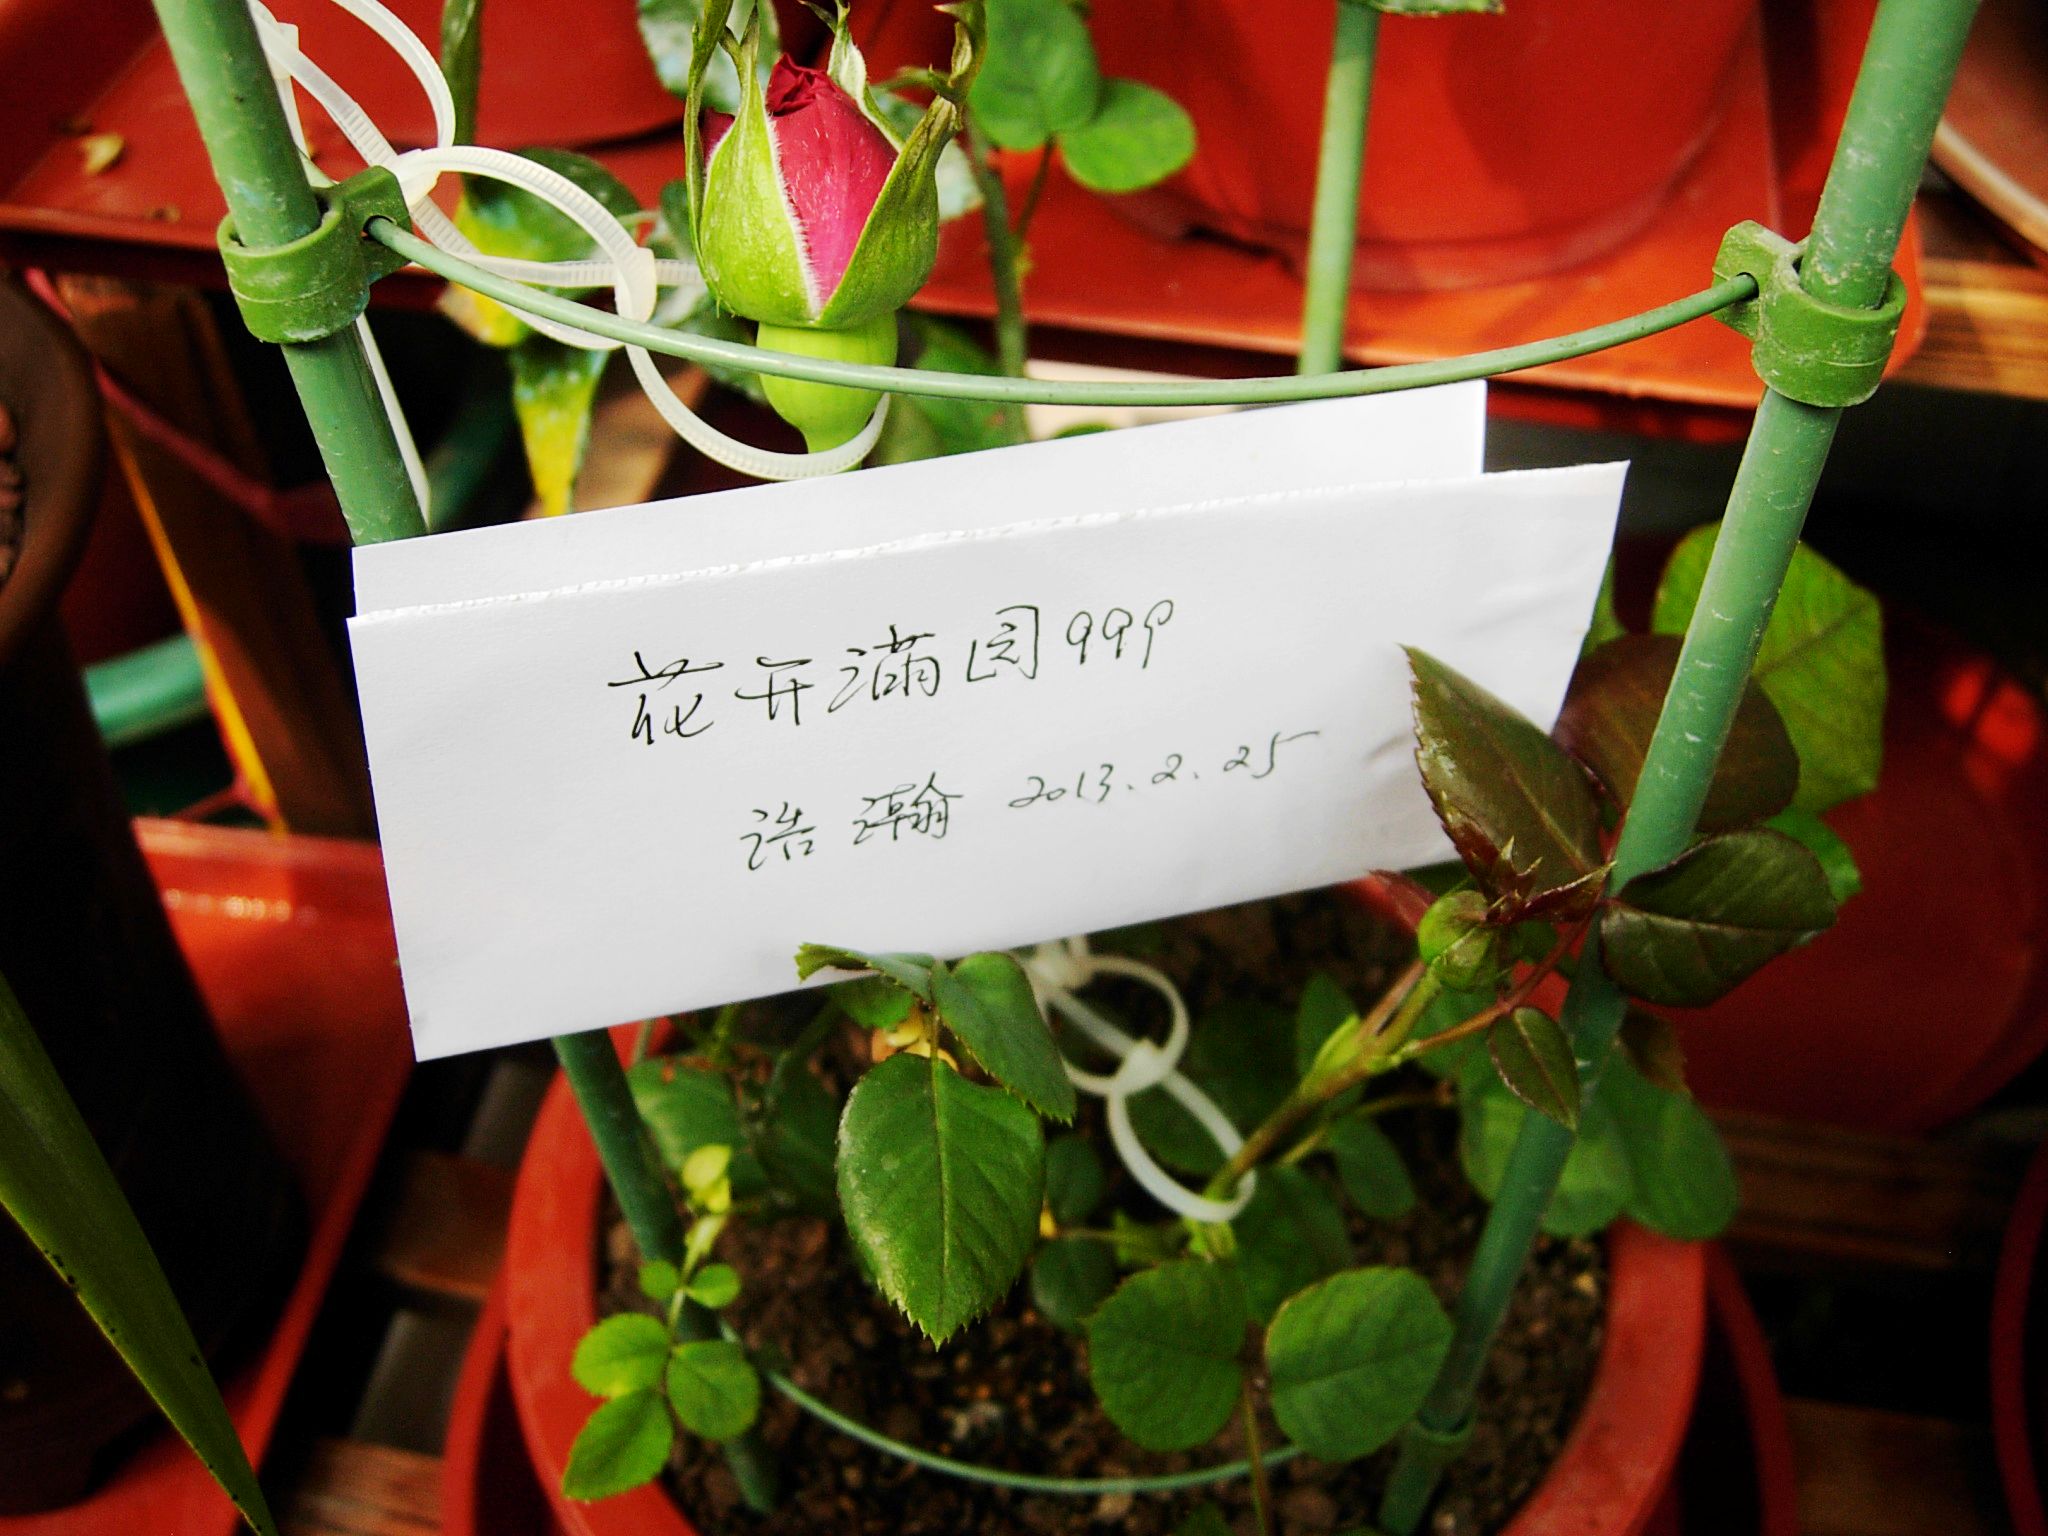 花开满园999
浩瀚 2013.2.25